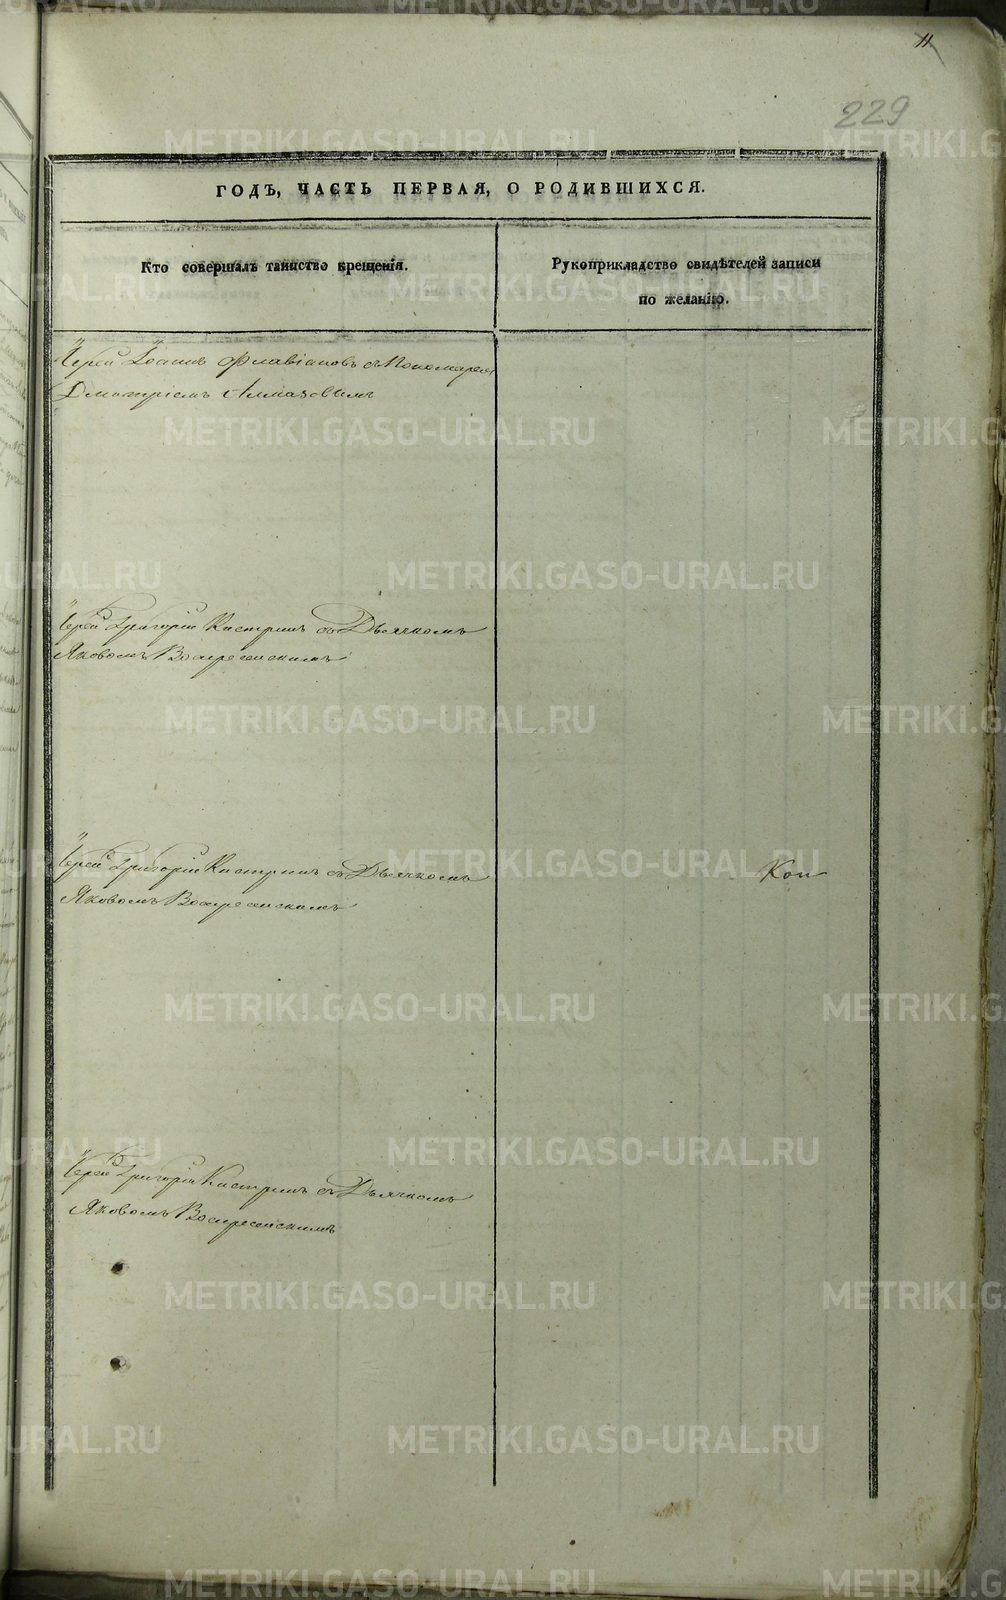 11
229
ГОДЪ, ЧАСТЬ ПЕРВАЯ, О РОДИВШИХСЯ.
Кто совершалъ таинство крещенія.
Рукоприкладство свидѣтелей записи
по желанію.
Іерей Іоаннъ Флавіановъ съ Пономаремъ
Дмитріемъ Алмазовымъ
Іерей Григорій Кастринъ съ Дьячкомъ
Яковомъ Воскресенскимъ
Іерей Григорій Кастринъ съ Дьячкомъ
Яковомъ Воскресенскимъ
Коп
Іерей Григорій Кастринъ съ Дьячкомъ
Яковомъ Воскресенскимъ
METRIKI.GASO-URAL.RU